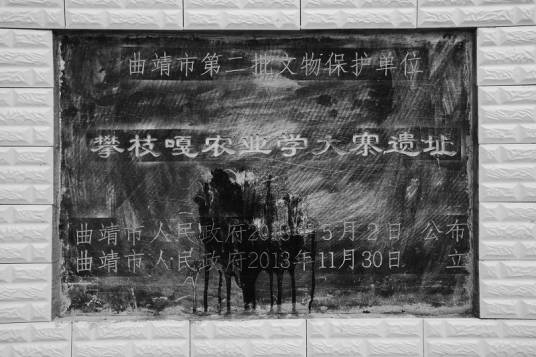 曲靖市第二批文物保护单位
攀枝嘎农业学大寨遗址
曲靖市人民政府2013年5月2日 公布
曲靖市人民政府2013年11月30日 立